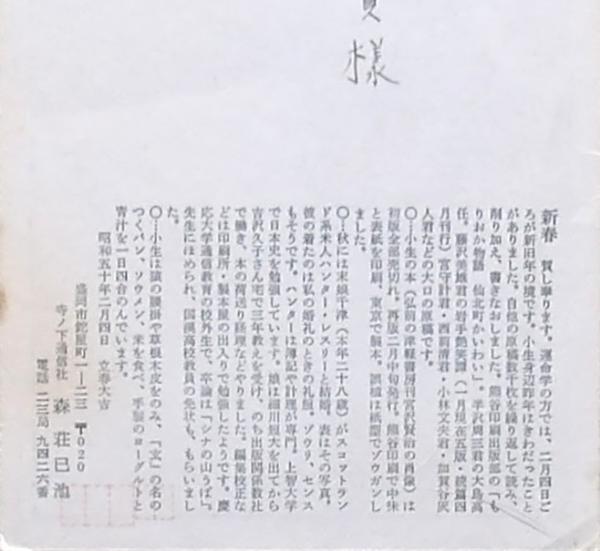 様
新春 賀し奉ります。運命学の方では、二月四日ご
ろが新旧年の境です。小生身辺昨年はきわだったこと
がありました。自他の原稿数千枚を繰り返して読み、
削り加え、書きなおしました。熊谷印刷出版部の「も
りおか物語 仙北町かいわい」。半沢周三君の大島高
任。藤沢美雄君の岩手艶笑譚(一月現在五版・続篇四
月刊行)宮守計君・西前清君・小林文夫君・加賀谷辰
人君などの大口の原稿です。
〇…小生の本(弘前の津軽書房刊宮沢賢治の肖像)は
初版全部売切れ。再版二月中旬発行。熊谷印刷で中味
と表紙を印刷、東京で製本、誤植は紙型でゾウガンし
ました。
〇…秋には末娘千津(本年二十八歳)がスコットラン
ド系米人ハンター・レスリーと結婚、表はその写真。
彼の着たのは私の婚礼のときの礼服。ゾウリ、センス
もそうです。ハンターは簿記や計理が専門。上智大学
で日本史を勉強しています。娘は細川短大を出てから
吉沢久子さん宅で三年教えを受け、のち出版関係数社
で働き、本の荷送り経理などやりました。編集校正な
どは印刷所・製本屋の出入りで勉強したようです。慶
応大学通信教育の校外生で、卒論は「シナの山うば」。
先生にほめられ、国漢高校教員の免状も、もらいまし
た。
〇…小生は猿の腰掛や草根木皮をのみ、「玄」の名の
つくパン、ソウメン、米を食べ、手製のヨーグルトと
青汁を一日四合のんでいます。
昭和五十年二月四日 立春大吉
盛岡市鉈屋町一―二三 〒020
寺ノ下通信社 森 荘已池
電話 二三局 九四二六番